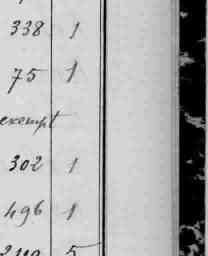 338 1
75 1
exempt
302 1
496 1
5